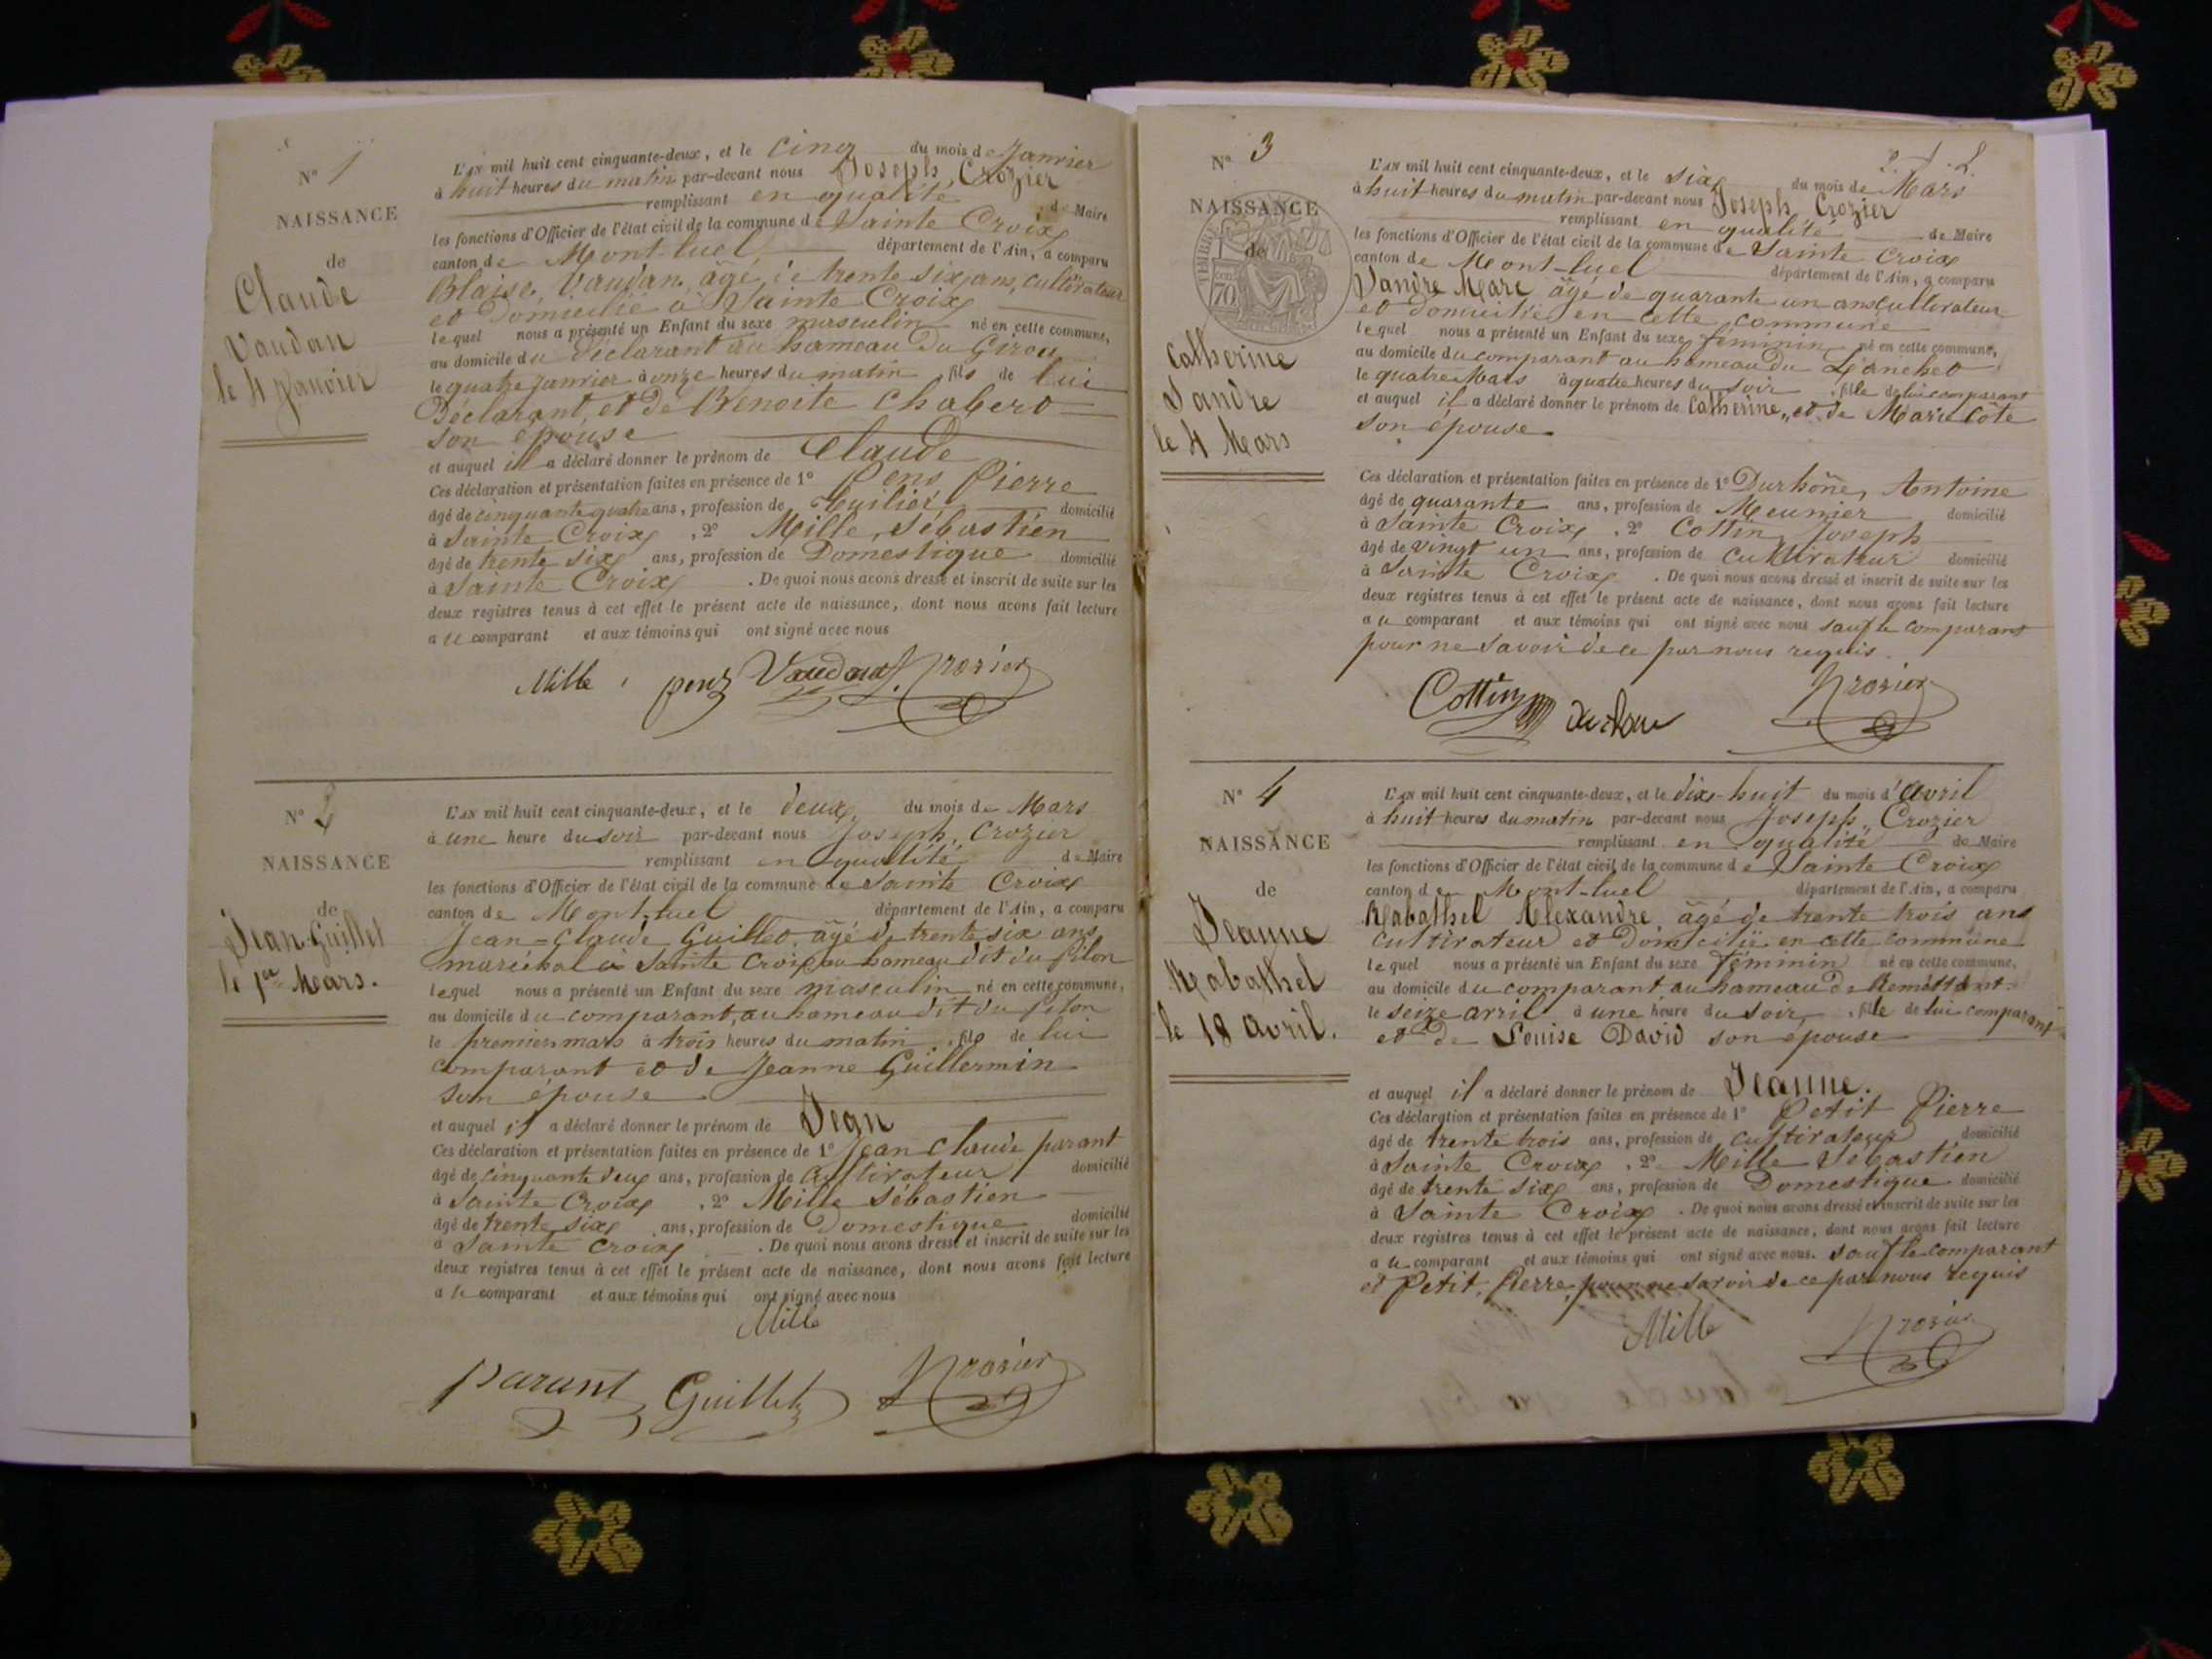 N° 1
NAISSANCE
de
Claude
Vaudan
le 4 Janvier
L'AN mil huit cent cinquante-deux, et le cinq du mois de Janvier
à huit heures du matin par-devant nous Joseph Crozier
remplissant en qualité de Maire
les fonctions d'Officier de l'état civil de la commune de Sainte Croix
canton de Mont-luel département de l'Ain, a comparu
Blaise Vaudan, âgé de trente six ans, cultivateur
et domicilié à Sainte Croix
lequel nous a présenté un Enfant du sexe masculin né en cette commune,
au domicile du déclarant au hameau du Girou
le quatre Janvier à onze heures du matin fils de lui
Déclarant, et de Benoite Chabert
son épouse
et auquel il a déclaré donner le prénom de Claude
Ces déclaration et présentation faites en présence de 1° Pens Pierre
âgé de cinquante quatre ans, profession de Tuilier domicilié
à Sainte Croix, 2° Mille, Sébastien
âgé de trente six ans, profession de Domestique domicilié
à Sainte Croix. De quoi nous avons dressé et inscrit de suite sur les
deux registres tenus à cet effet le présent acte de naissance, dont nous avons fait lecture
au comparant et aux témoins qui ont signé avec nous
Mille penz Vaudan J. Crozier
N° 2
NAISSANCE
de
Jean Guillet
le 1er Mars.
L'AN mil huit cent cinquante-deux, et le deux du mois de Mars
à une heure du soir par-devant nous Joseph Crozier
remplissant en qualité de Maire
les fonctions d'Officier de l'état civil de la commune de Sainte Croix
canton de Mont-luel département de l'Ain, a comparu
Jean-Claude Guillet, âgé de trente six ans,
maréchal à Sainte Croix au hameau dit du pilon
lequel nous a présenté un Enfant du sexe masculin né en cette commune,
au domicile du comparant, au hameau dit du pilon
le premier mars à trois heures du matin, fils de lui
comparant et de Jeanne Guillermin
son épouse
et auquel il a déclaré donner le prénom de Jean
Ces déclaration et présentation faites en présence de 1° Jean Claude parant
âgé de cinquante deux ans, profession de cultivateur domicilié
à Sainte Croix, 2° Mille Sébastien
âgé de trente six ans, profession de Domestique domicilié
à Sainte Croix. De quoi nous avons dressé et inscrit de suite sur les
deux registres tenus à cet effet le présent acte de naissance, dont nous avons fait lecture
au comparant et aux témoins qui ont signé avec nous
Mille
parant Guillet Crozier
N° 3
NAISSANCE
de
TIMBRE
70
Catherine
Sandre
le 4 Mars
L'AN mil huit cent cinquante-deux, et le six du mois de Mars
à huit heures du matin par-devant nous Joseph Crozier
remplissant en qualité de Maire
les fonctions d'Officier de l'état civil de la commune de Sainte Croix
canton de Mont-luel département de l'Ain, a comparu
Sandre Marc âgé de quarante un ans cultivateur
et domicilié en cette commune
lequel nous a présenté un Enfant du sexe féminin né en cette commune,
au domicile du comparant au hameau du
le quatre Mars à quatre heures du soir, fille de lui comparant
et auquel il a déclaré donner le prénom de Catherine, et de Marie Côte
son épouse
Ces déclaration et présentation faites en présence de 1° Durhône, Antoine
âgé de quarante ans, profession de Meunier domicilié
à Sainte Croix, 2° Cottin Joseph
âgé de vingt un ans, profession de cultivateur domicilié
à Sainte Croix. De quoi nous avons dressé et inscrit de suite sur les
deux registres tenus à cet effet le présent acte de naissance, dont nous avons fait lecture
au comparant et aux témoins qui ont signé avec nous sauf le comparant
pour ne savoir de ce par nous requis.
Cottin Crozier
N° 4
NAISSANCE
de
Jeanne
Mabathel
le 18 avril.
L'AN mil huit cent cinquante-deux, et le dix-huit du mois d'avril
à huit heures du matin par-devant nous Joseph Crozier
remplissant en qualité de Maire
les fonctions d'Officier de l'état civil de la commune de Sainte Croix
canton de Mont-luel département de l'Ain, a comparu
Mabathel Alexandre âgé de trente trois ans
cultivateur et domicilié en cette commune
lequel nous a présenté un Enfant du sexe féminin né en cette commune,
au domicile du comparant au hameau de
le seize avril à une heure du soir, fille de lui comparant
et de Louise David son épouse
et auquel il a déclaré donner le prénom de Jeanne.
Ces déclaration et présentation faites en présence de 1° Petit Pierre
âgé de trente trois ans, profession de cultivateur domicilié
à Sainte Croix, 2° Mille Sébastien
âgé de trente six ans, profession de Domestique domicilié
à Sainte Croix. De quoi nous avons dressé et inscrit de suite sur les
deux registres tenus à cet effet le présent acte de naissance, dont nous avons fait lecture
au comparant et aux témoins qui ont signé avec nous. sauf le comparant
et Petit, Pierre, pour ne savoir de ce par nous requis
Mille Crozier